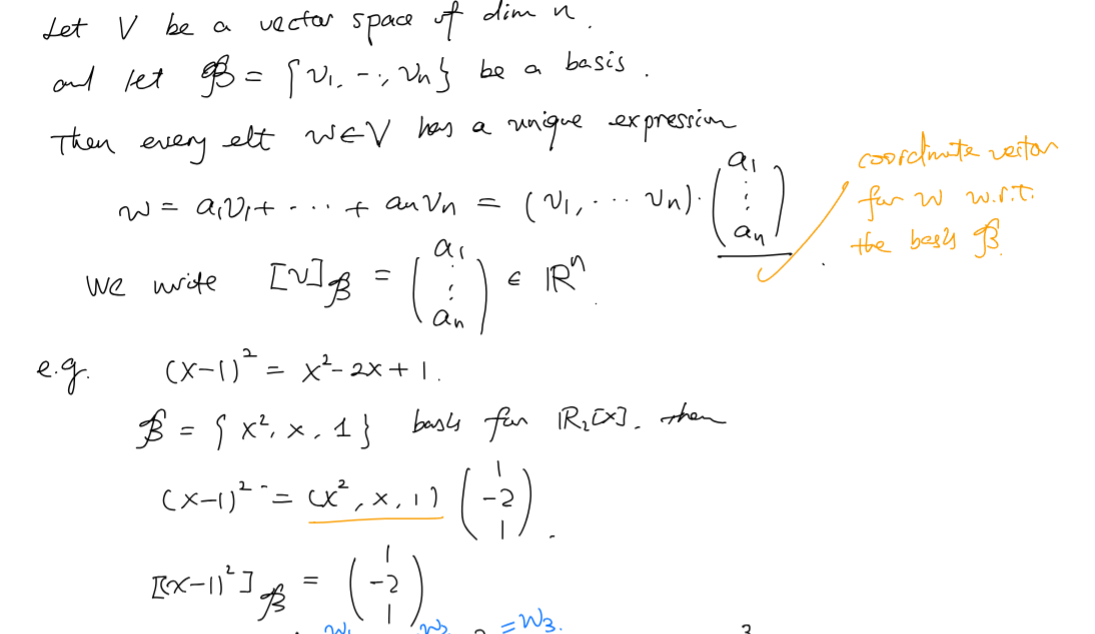 Let V be a vector space of dim n.
and let ℬ = {v₁, -·, vₙ} be a basis.
Then every elt w∈V has a unique expression
w = a₁v₁ + ··· + aₙvₙ = (v₁, ··· vₙ)·(a₁ ⋮ aₙ)
coordinate vector
for w w.r.t.
the basis ℬ.
We write [v]ℬ = (a₁ ⋮ aₙ) ∈ ℝⁿ.
e.g. (x-1)² = x²-2x+1.
ℬ = {x², x, 1} basis for ℝ₂[x]. then
(x-1)² = (x², x, 1) (1 -2 1).
[(x-1)²]ℬ = (1 -2 1)
= w₃.